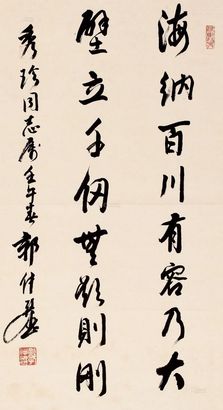 海纳百川有容乃大
壁立千仞無欲則刚
秀珍同志属壬午春郭仲選